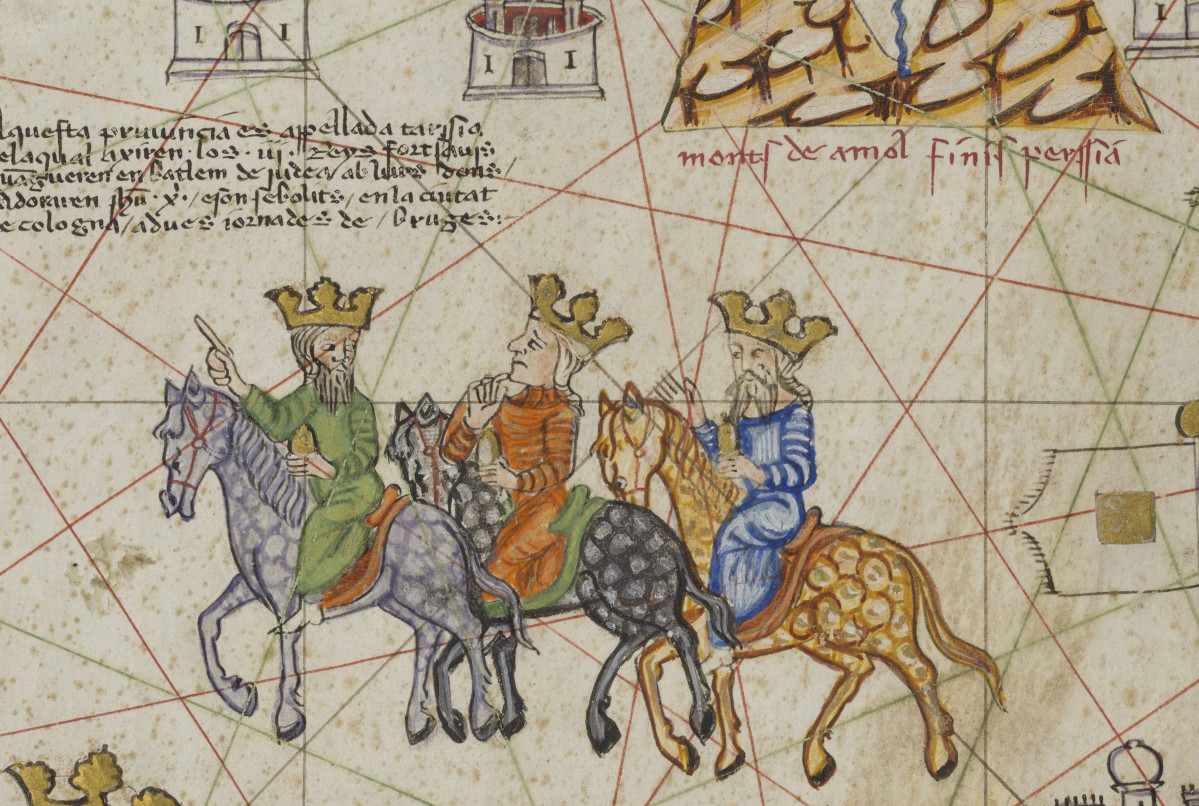 Aquesta provincia es apellada tarssia
e laqual axiren los iii Reys fort savis
vangueren en batlem de judea ab lurs dons
adoraren jhu xp e son sebolits en la ciutat
e cologna a dues jornades de bruges
monts de amol finis perssia